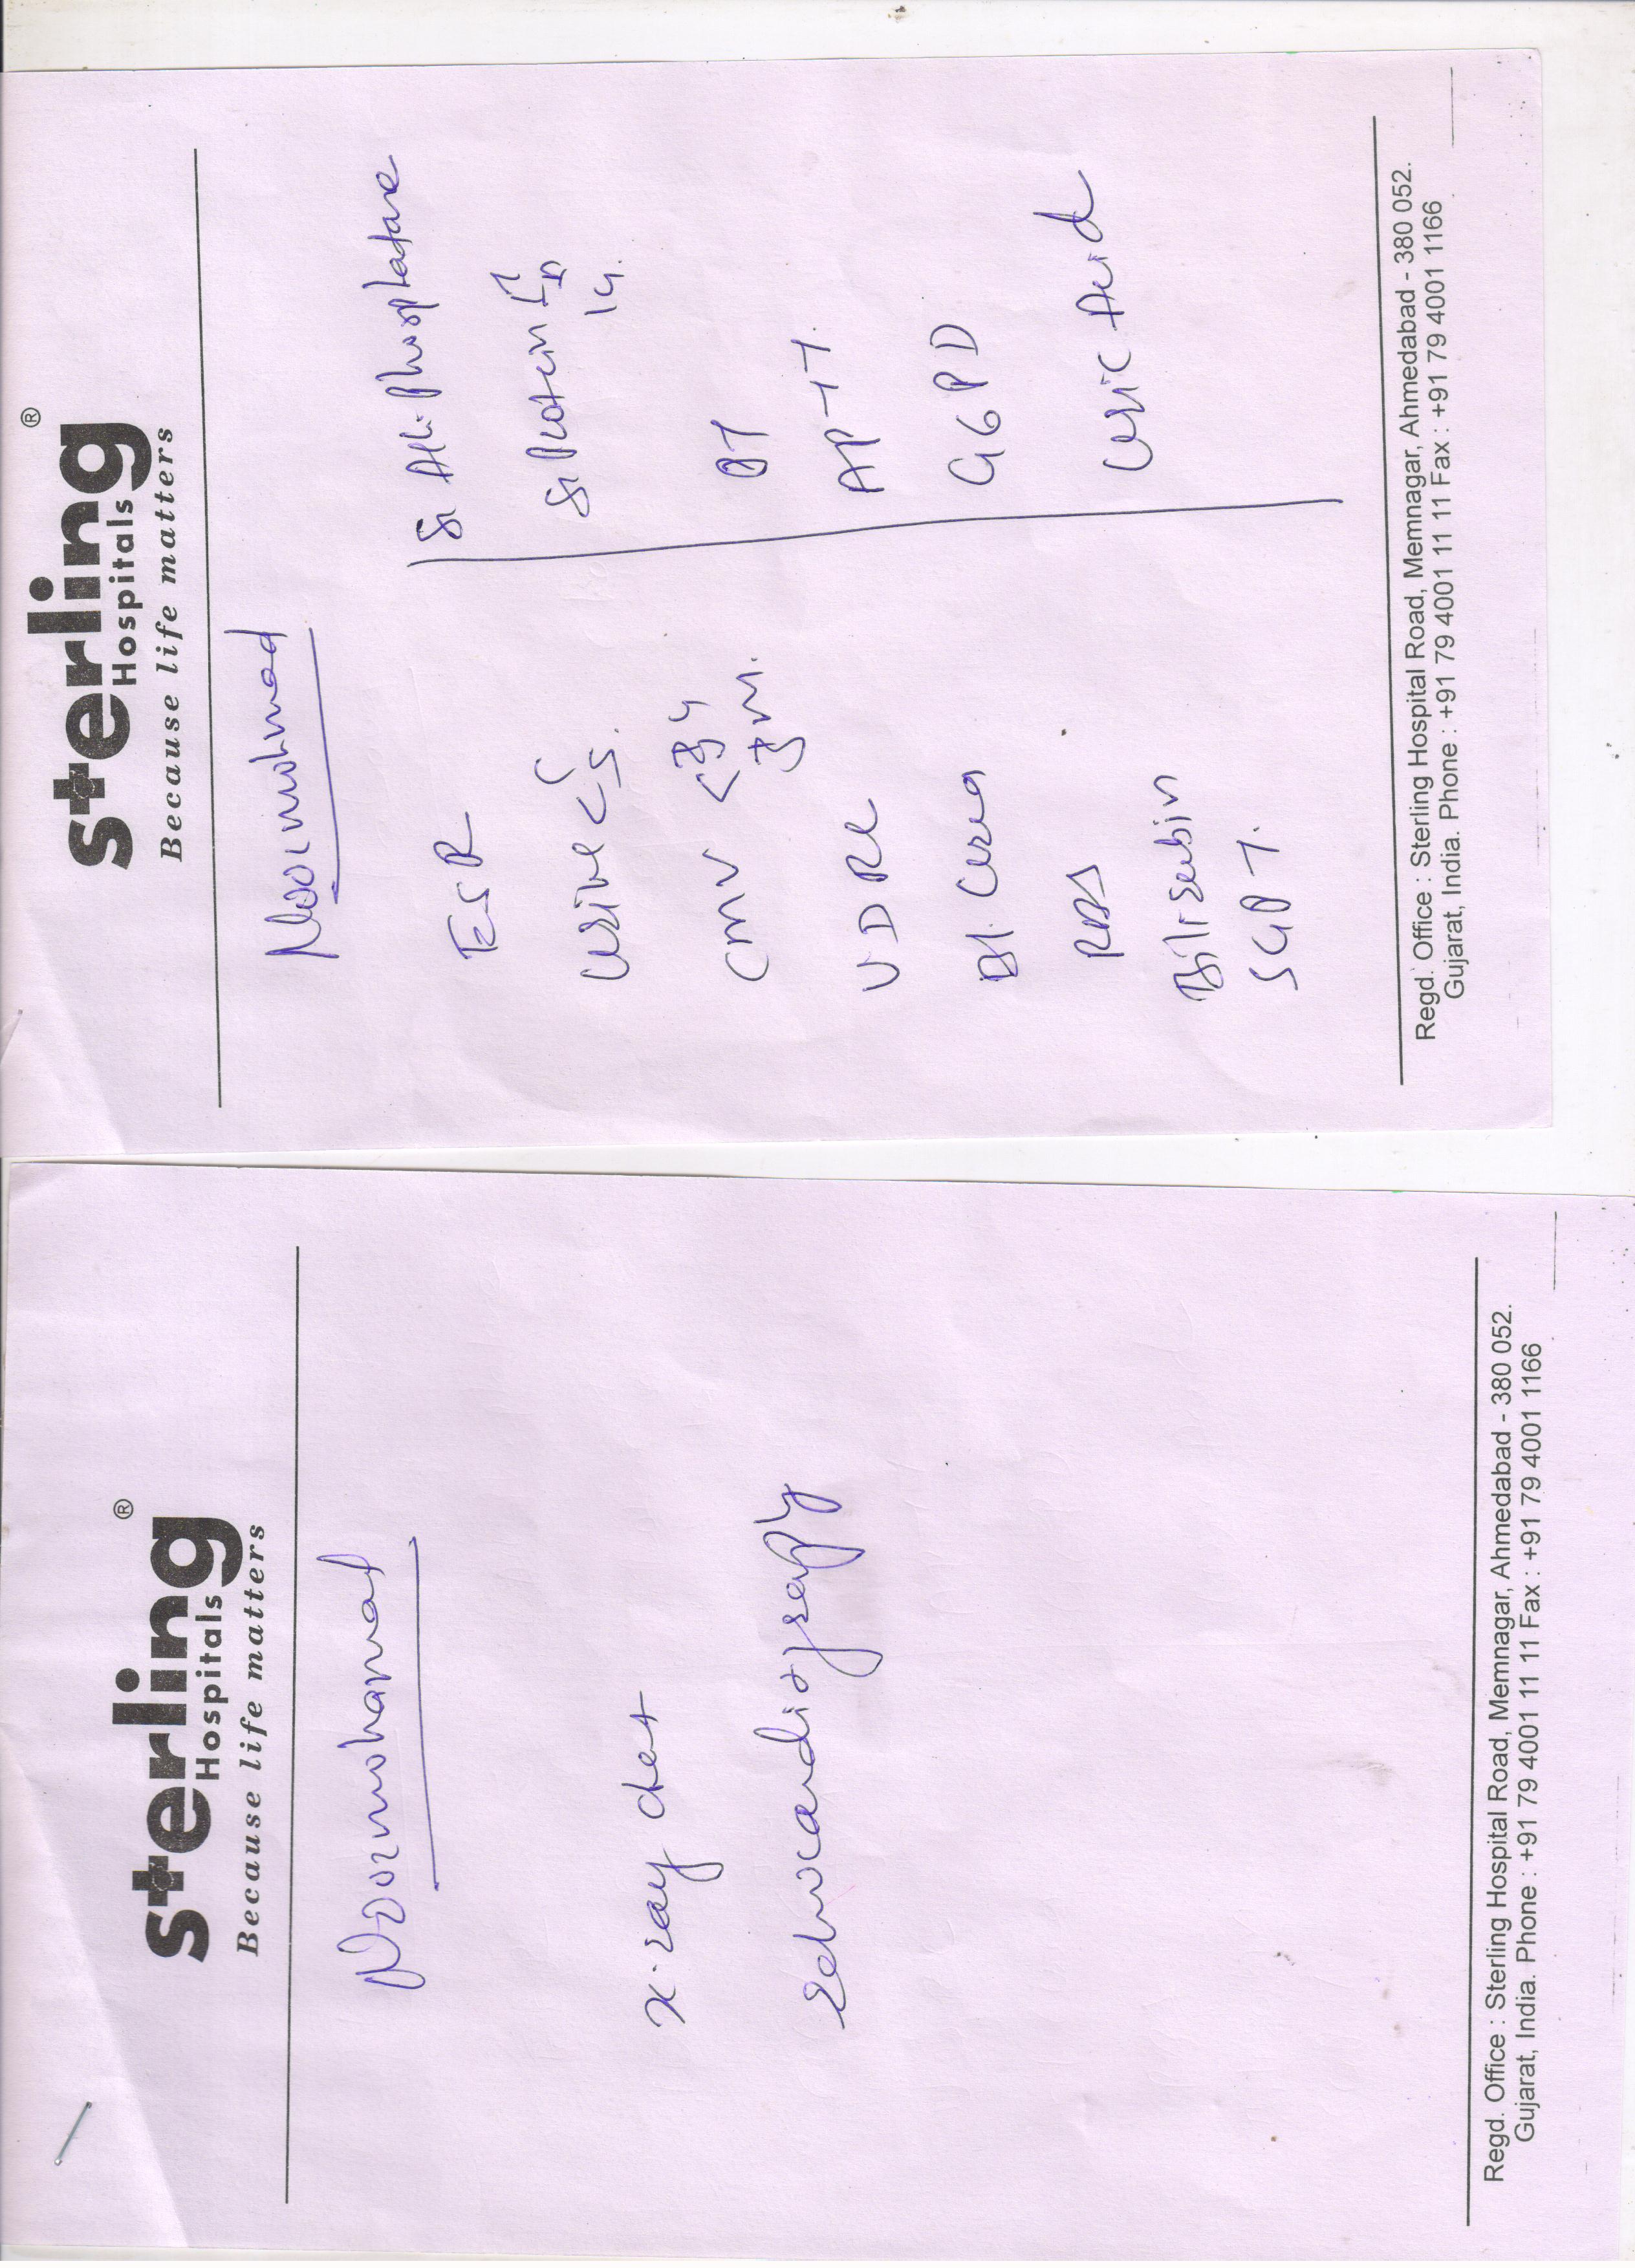 sterling®
Hospitals
Because life matters
Noormohmad
ESR
Urine < C
S.
CMV < IgG
IgM.
VDRL
Bl. Urea
RBS
Bilirubin
SGPT.
S. Alk. Phosphatase
S. Protein
PT
APTT.
G6PD
Uric Acid
Regd. Office : Sterling Hospital Road, Memnagar, Ahmedabad - 380 052.
Gujarat, India. Phone : +91 79 4001 11 11 Fax : +91 79 4001 1166
sterling®
Hospitals
Because life matters
Noormohamad
X-ray chest
Echocardiography
Regd. Office : Sterling Hospital Road, Memnagar, Ahmedabad - 380 052.
Gujarat, India. Phone : +91 79 4001 11 11 Fax : +91 79 4001 1166